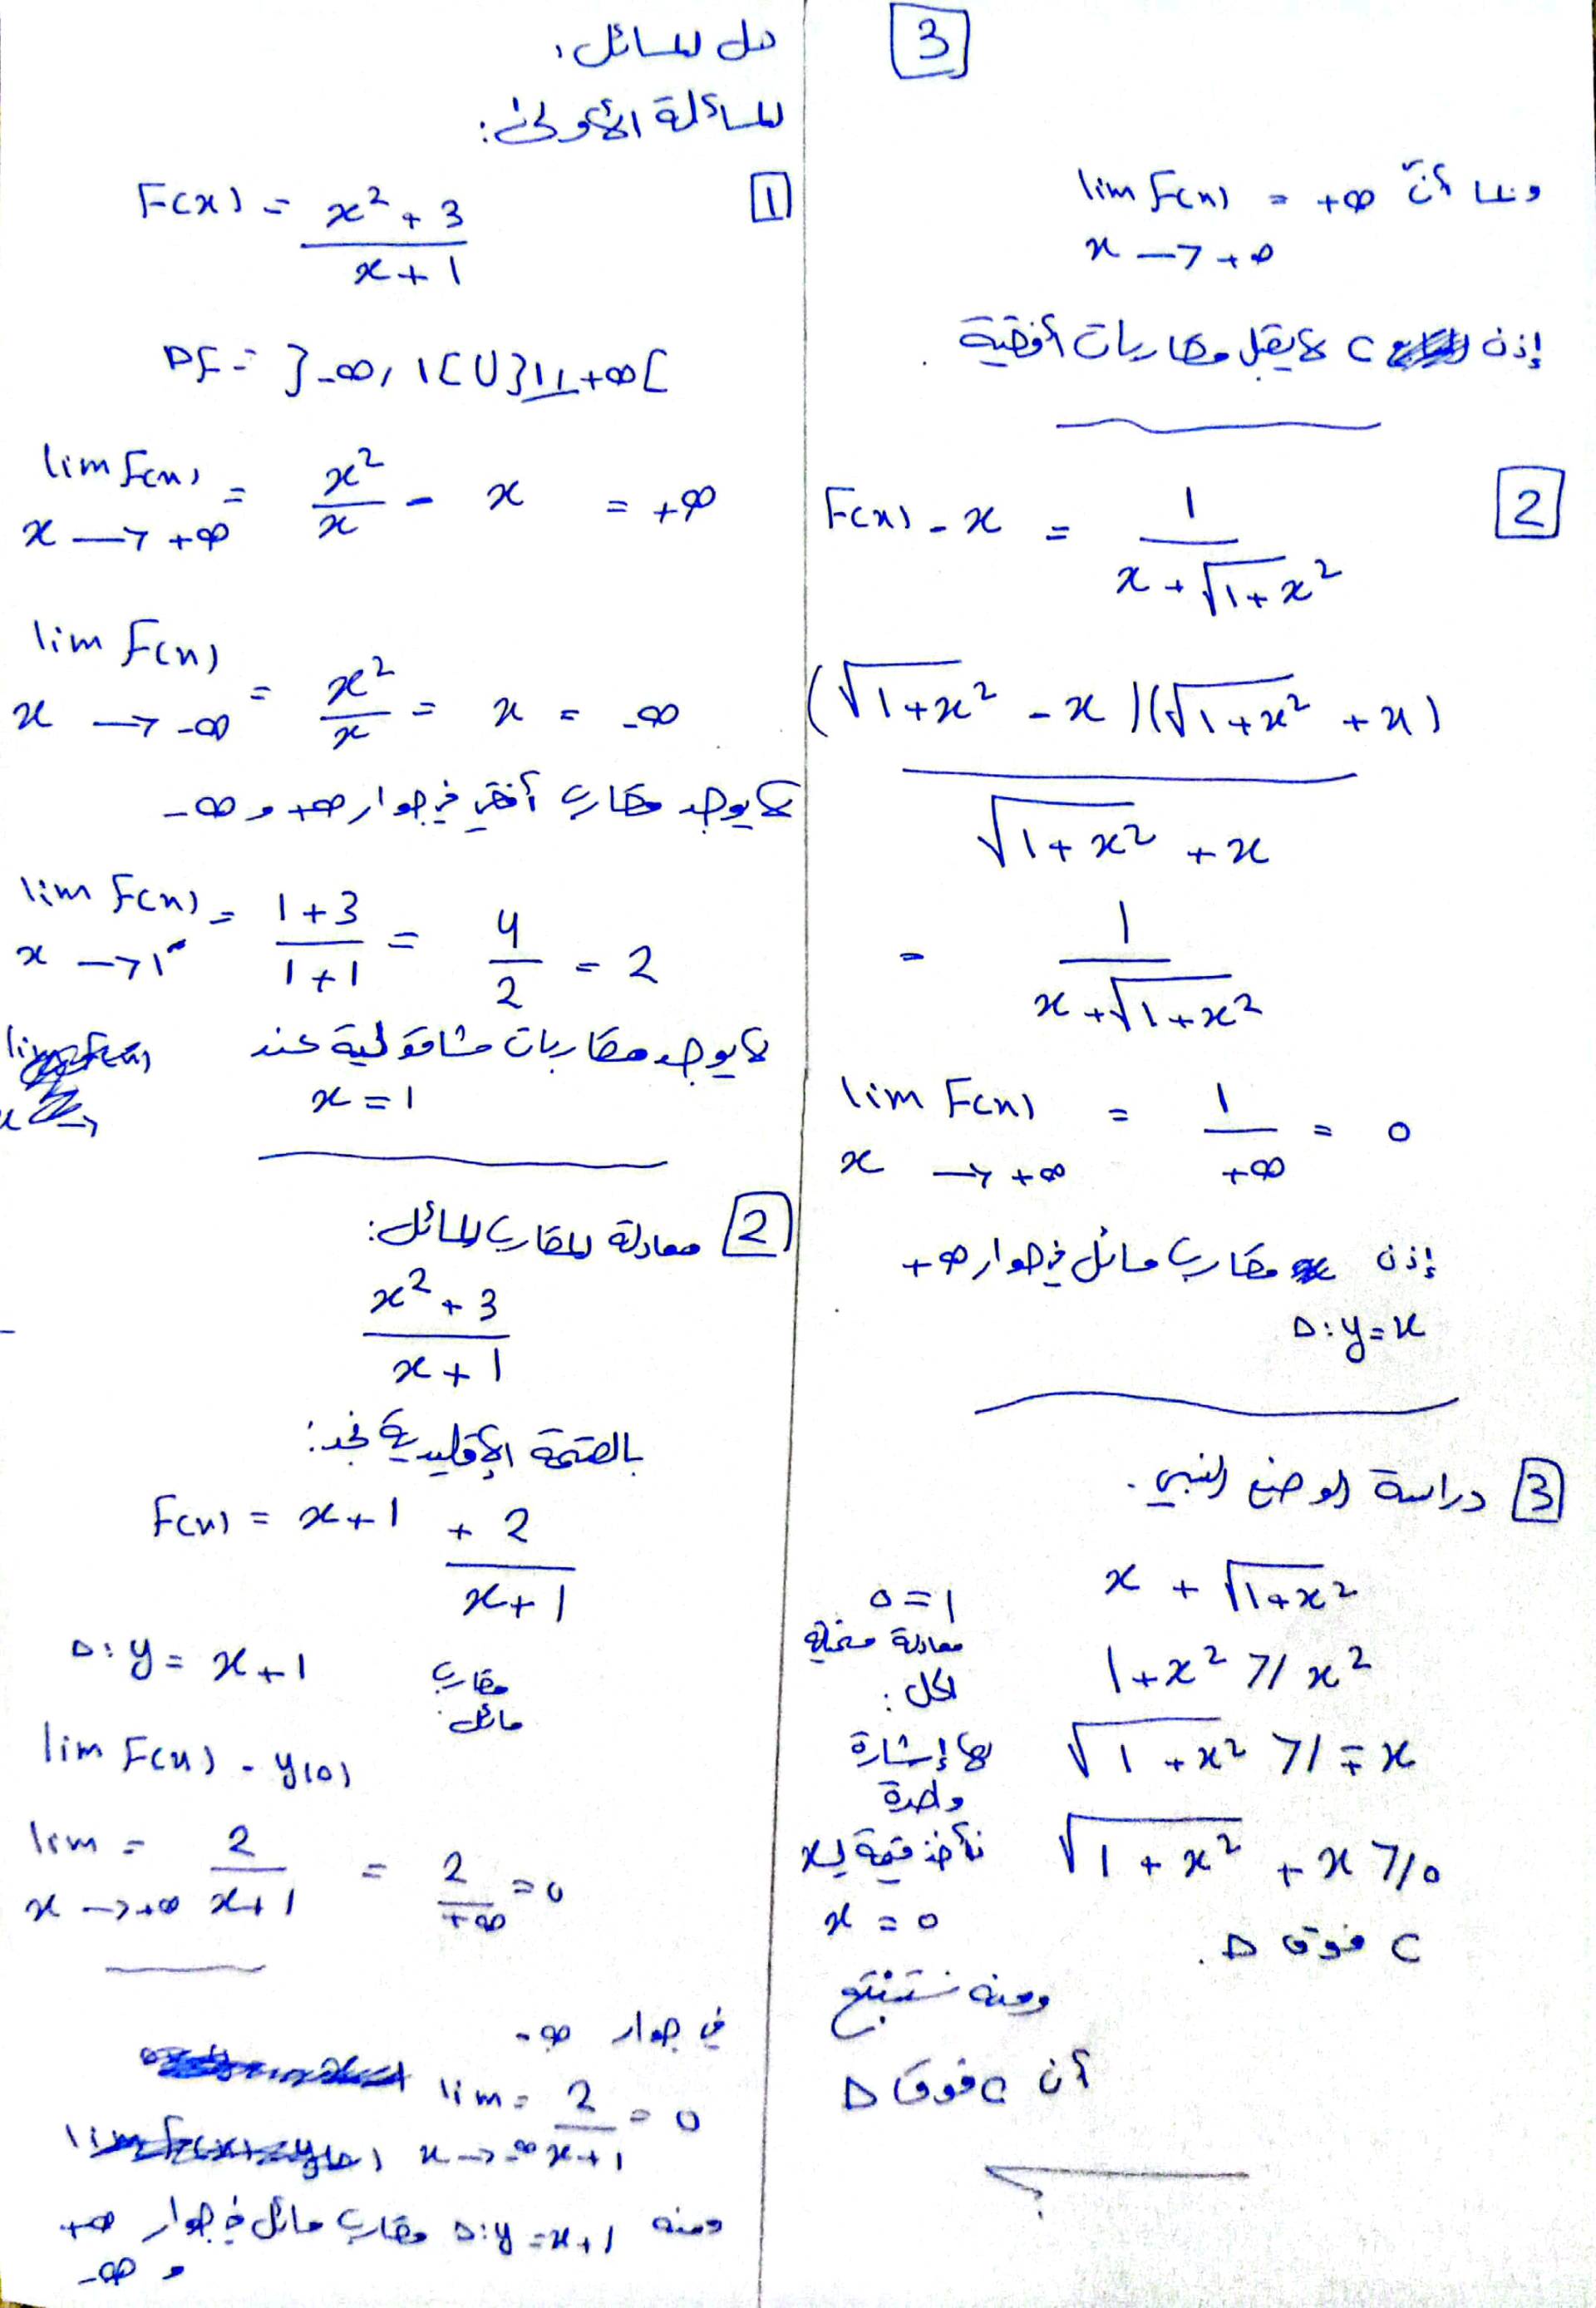 حل المسائل،
المسألة الأولى:
1
F(x) = (x² + 3)/(x + 1)
Df = ]-∞, 1[ U ]1, +∞[
lim F(x) = x²/x = x = +∞
x → +∞
lim F(x) = x²/x = x = -∞
x → -∞
لا يوجد مقارب أفقي في جوار +∞ و -∞
lim F(x) = (1+3)/(1+1) = 4/2 = 2
x → 1
لا يوجد مقاربات شاقولية عند
x = 1
2 معادلة المقارب المائل:
(x² + 3)/(x + 1)
بالقسمة الإقليدية نجد:
F(x) = x + 1 + 2/(x + 1)
D: y = x + 1 مقارب
مائل
lim F(x) - y(o)
lim = 2/(x+1) = 2/+∞ = 0
x → +∞
في جوار -∞
lim = 2/(x+1) = 0
x → -∞
ومنه D: y = x+1 مقارب مائل في جوار +∞
و -∞
3
وبما أنّ lim F(x) = +∞
x → +∞
إذن C لا يقبل مقاربات أفقية .
2
F(x) - x = 1/(x + √1+x²)
(√1+x² - x)(√1+x² + x)
√1+x² + x
= 1/(x + √1+x²)
lim F(x) = 1/+∞ = 0
x → +∞
إذن مقارب مائل في جوار +∞
D: y = x
3 دراسة الوضع النسبي .
x + √1+x²
1+x² >/ x²
√1+x² >/ ∓ x
√1+x² + x >/ 0
C فوق D .
0 = 1
معادلة مستحيلة
الحل :
لها إشارة
واحدة
نأخذ قيمة لـ x
x = 0
ومنه نستنتج
أن C فوق D